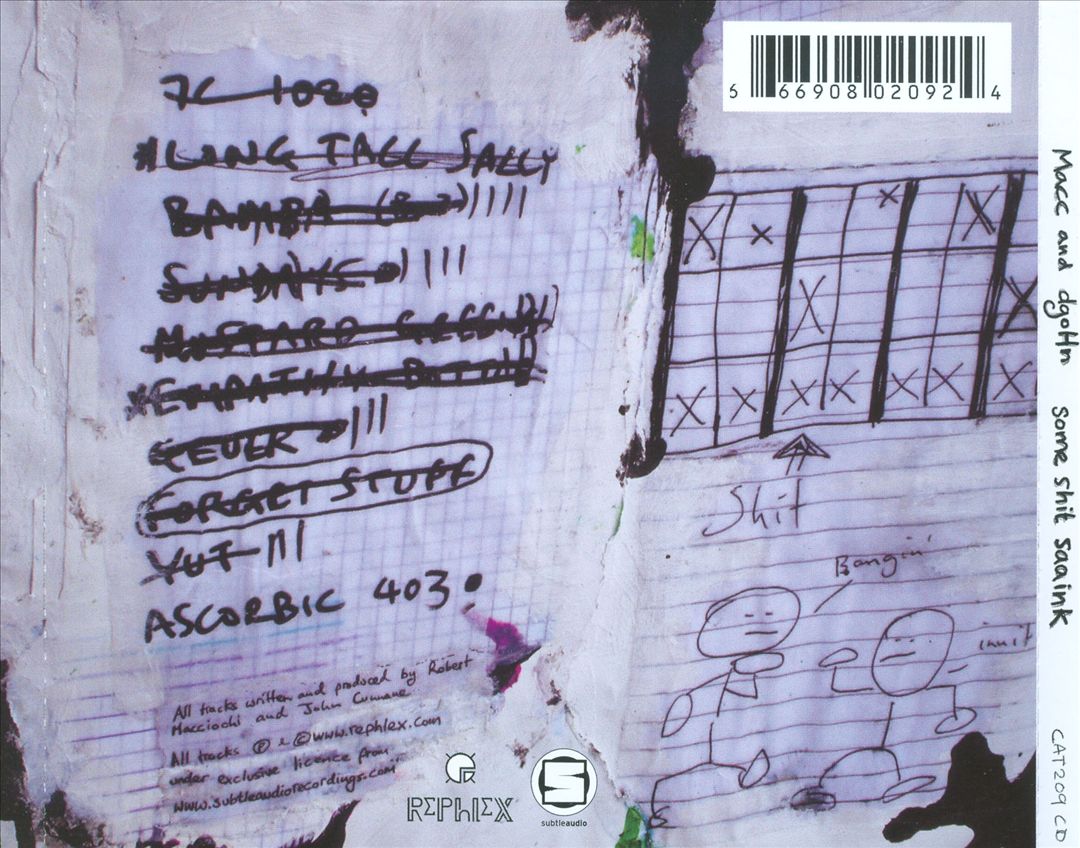 7C 1020
LONG TALL SALLY
BAMBA
SUNDAYS
MUSTARD
EMPATHY BUTTON
FEVER
FORGET STUFF
YUT
ASCORBIC 403.
All tracks written and produced by Robert
Macciochi and John Cunnane
All tracks ℗ & ©www.rephlex.com
under exclusive licence from
www.subtleaudiorecordings.com
REPHLEX
S
subtleaudio
5 66908 02092 4
X X X X
X X
X X X X X X X
Shit
Bangin'
innit
Macc and dgoHn some shit saaink CAT209 CD